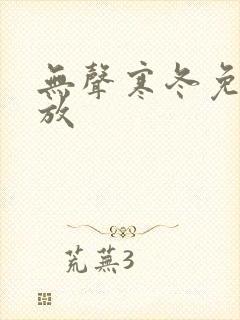 無聲寒冬免
放
荒蕪3